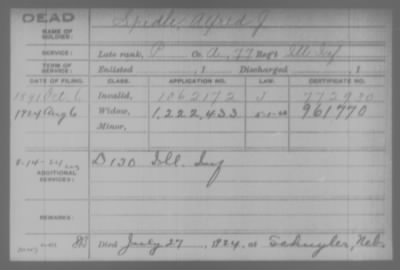 DEAD
NAME OF SOLDIER: Spidle, Alfred J
SERVICE: Late rank, P Co. A, 77 Reg't Ill Inf
TERM OF SERVICE: Enlisted , 1 Discharged , 1
DATE OF FILING. CLASS. APPLICATION NO. LAW. CERTIFICATE NO.
1891 Oct 6 Invalid, 1062172 J
1924 Aug 6 Widow, 1,222,433 961770
Minor,
8-14-24
ADDITIONAL SERVICES: D 130 Ill. Inf
REMARKS:
Died July 27, 1924, at Schuyler, Neb.